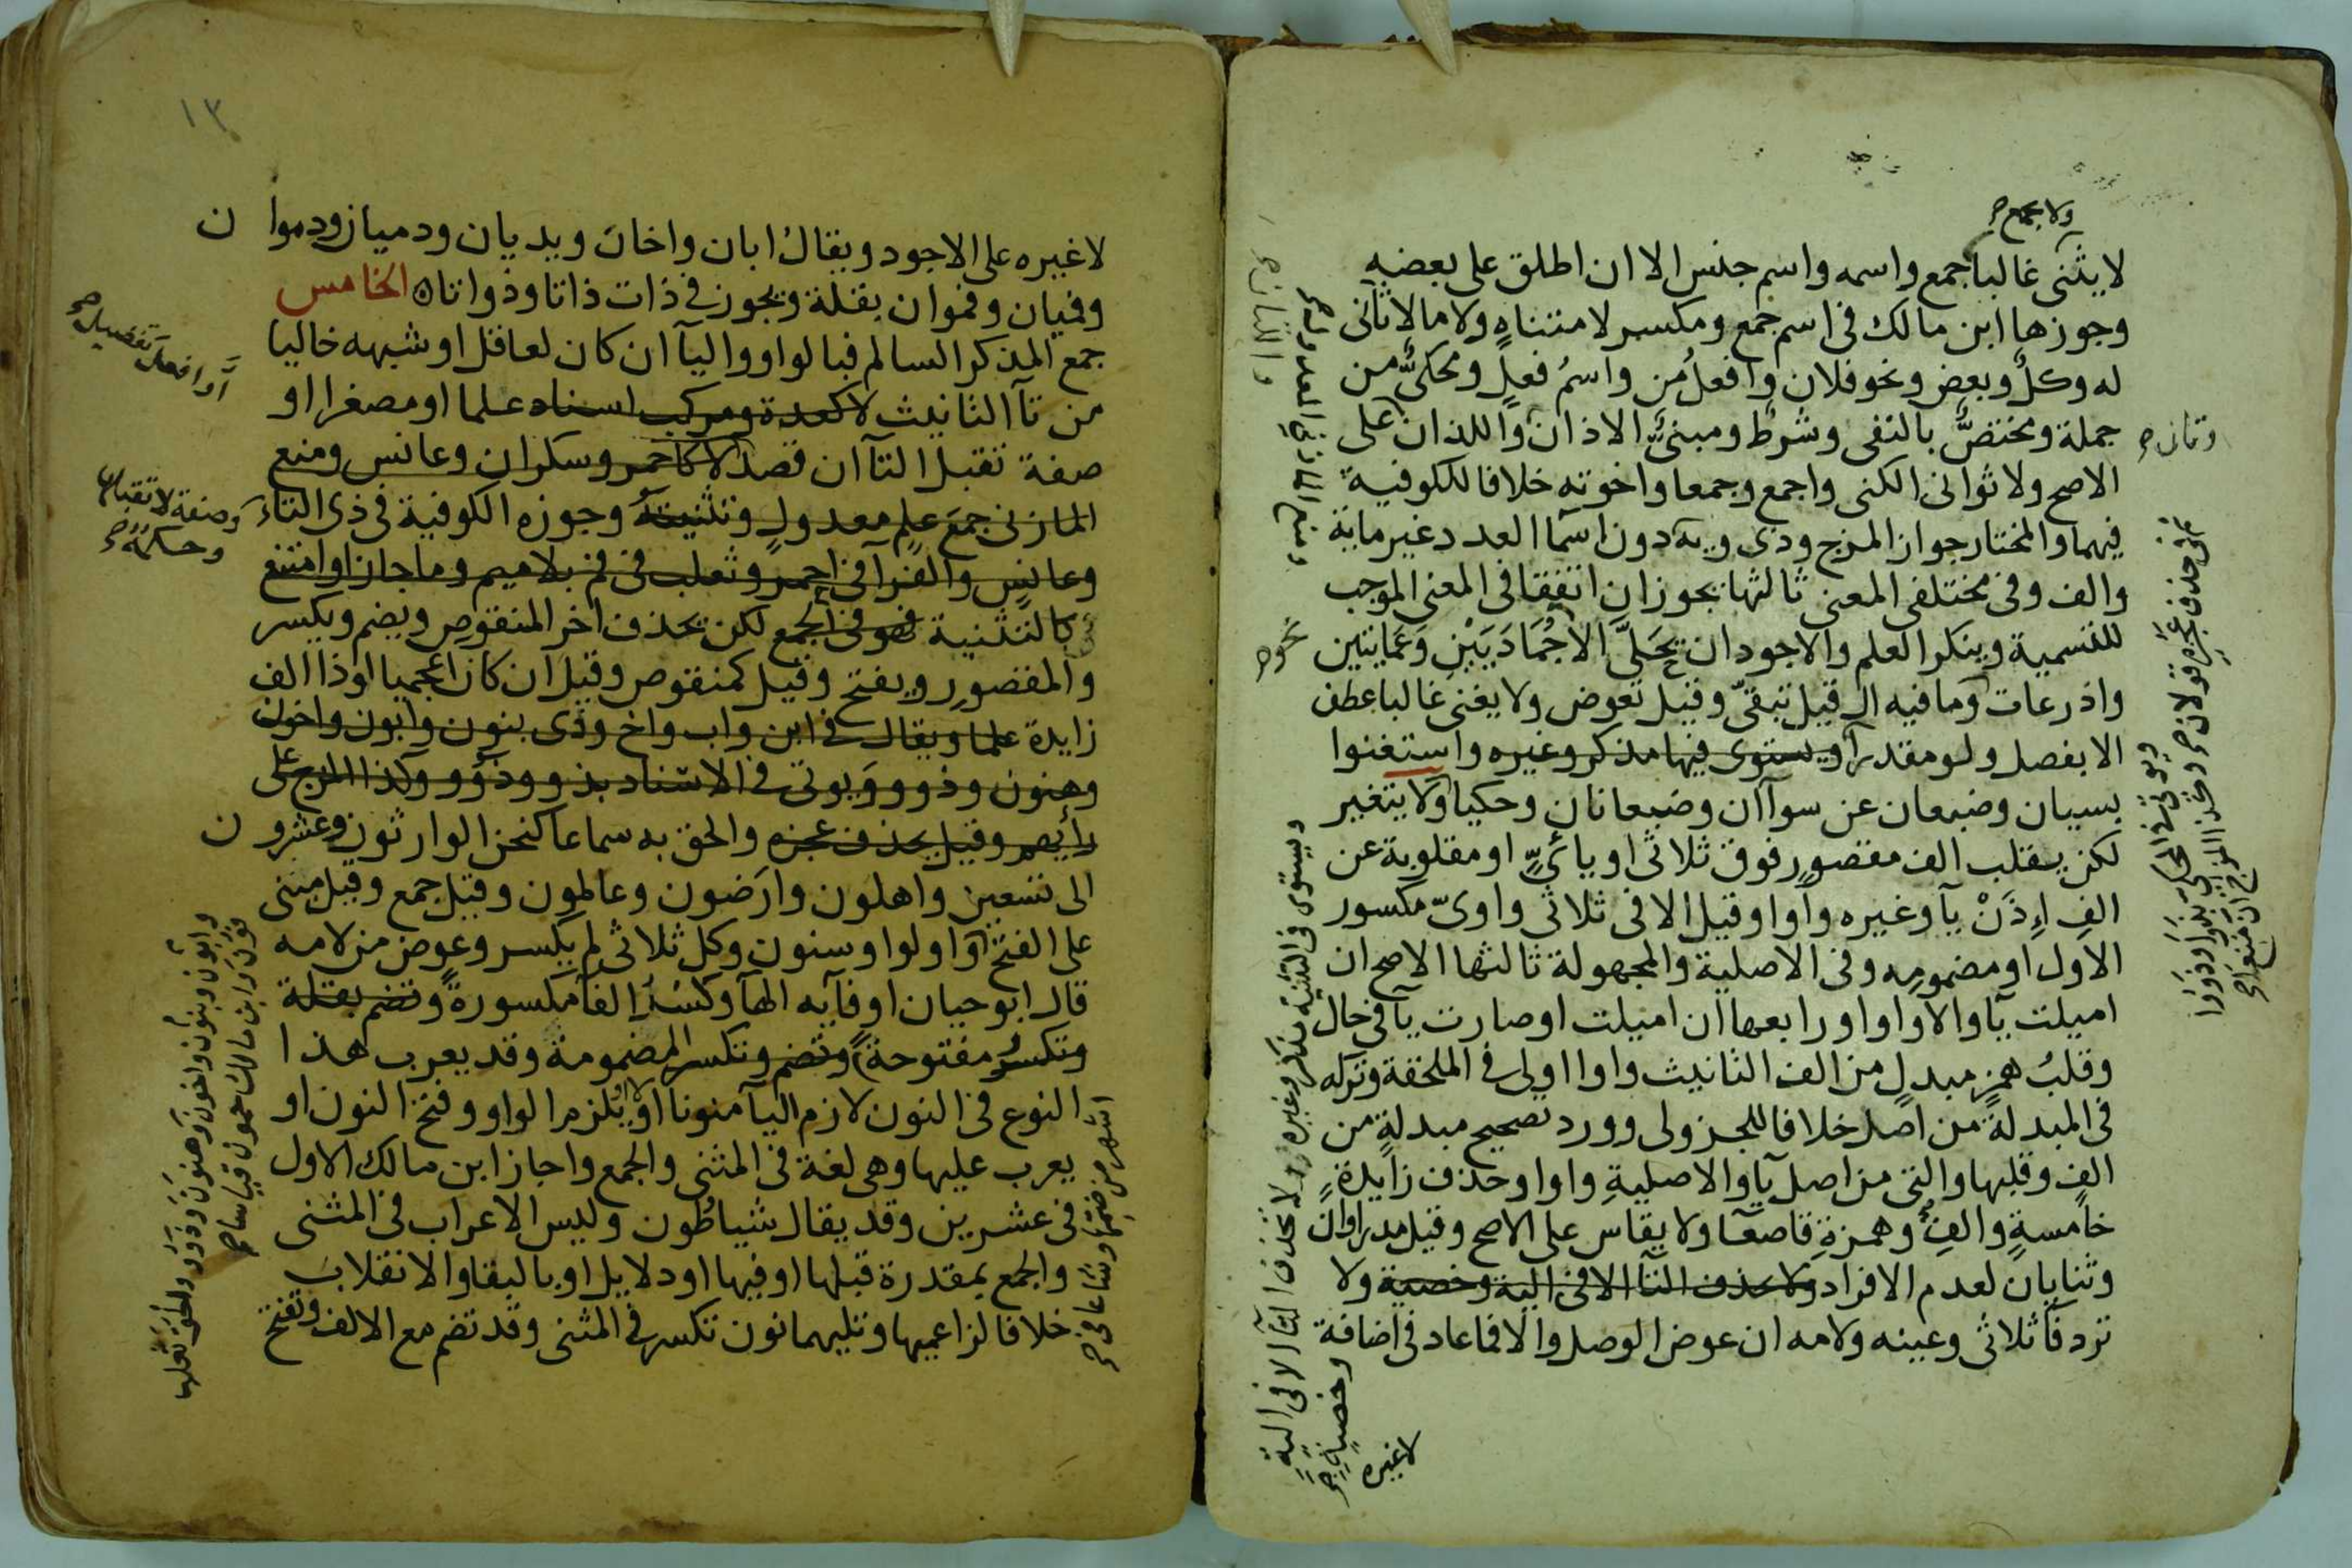 ولا يجمع صح
لا يثنى غالبا جمع واسمه واسم جنس الا ان اطلق على بعضه
وجوزها ابن مالك فى اسم جمع ومكسر لا متناه ولا ما لا ثانى
له وكل وبعض ونحو فلان وافعل من واسم فعل ومحكى من
جملة ومختص بالنفى وشرط ومبنى الا ذان واللذان على
الاصح ولا ثوانى الكنى واجمع وجمعا واخوته خلافا للكوفية
فيهما والمختار جواز المزج وذى ويه دون اسما العدد غير ماية
والف وفى مختلفى المعنى ثالثها يجوز ان اتفقا فى المعنى الموجب
للتسمية وينكر العلم والاجود ان يحلى الا جماديين وعمايتين
واذرعات وما فيه ال قيل تبقى وقيل تعوض ولا يغنى غالبا عطف
الا بفصل ولو مقدرا ويستوى فيها مذكر وغيره واستغنوا
بسيان وضبعان عن سوآان وضبعانان وحكيا ولا يتغير
لكن يقلب الف مقصور فوق ثلاثى او يائى او مقلوبة عن
الف اذن يآ وغيره واوا وقيل الا فى ثلاثى واوى مكسور
الاول او مضمومه وفى الاصلية والمجهولة ثالثها الاصح ان
اميلت يآ والا واوا ورابعها ان اميلت او صارت يآ فى حال
وقلب همز مبدل من الف التانيث واوا اولى فى الملحقة وتركه
فى المبدلة من اصل خلافا للجزولى وورد تصحيح مبدلة من
الف وقلبها والتى من اصل يآ والاصلية واوا وحذف زايدة
خامسة والف وهمزة قاصعآ ولا يقاس على الاصح وقيل مدراوان
وثنايان لعدم الافراد ولا يحذف التآ الا فى الية وخصية ولا
ترد فآ ثلاثى وعينه ولامه ان عوض الوصل والا فما عاد فى اضافة
لا غيره
وثمان صح
نحو صح
ويستوى فى التثنية مذكر وغيره ولا تحذف التآ الا فى الية
وخصية صح
١٣
لا غيره على الاجود ويقال ابان واخان ويديان ودميان ودموان
وفميان وفموان بقلة ويجوز فى ذات ذاتا وذواتا ه الخامس
جمع المذكر السالم فبالواو واليآ ان كان لعاقل او شبهه خاليا
من تآ التانيث لا كعدة ومركب اسناد علما او مصغرا او
صفة تقبل التآ ان قصد لا كاحمر وسكران وعانس ومنع
المازنى جمع علم معدول وتثنيته وجوزه الكوفية فى ذى التاء
وعانس والفرآ فى احمر وثعلب فى فم بلا ميم وما جاز او امتنع
كالتثنية فهو فى الجمع لكن يحذف اخر المنقوص ويضم ويكسر
والمقصور ويفتح وقيل كمنقوص وقيل ان كان اعجميا او ذا الف
زايدة علما ويقال فى ابن واب واخ وذى بنون وابون واخون
وهنون وذوو ويوتى فى الاسناد بذوو وذوو وكذا المزج على
رأيهم وقيل يحذف عجزه والحق به سماعا كنحن الوارثون وعشرون
الى تسعين واهلون وارضون وعالمون وقيل جمع وقيل مبنى
على الفتح واولوا وسنون وكل ثلاثى لم يكسر وعوض من لامه
قال ابو حيان او فآيه الهآ وكسر الفا مكسورة وتضم بقلة
وتكسر مفتوحة وتضم وتكسر المضمومة وقد يعرب هذا
النوع فى النون لازم اليآ منونا او لا او يلزم الواو وفتح النون او
يعرب عليها وهى لغة فى المثنى والجمع واجاز ابن مالك الاول
فى عشرين وقد يقال شياطون وليس الاعراب فى المثنى
والجمع بمقدرة قبلها او فيها او دلايل او بالبقا والانقلاب
خلافا لزاعميها وتليهما نون تكسر فى المثنى وقد تضم مع الالف وتفتح
او افعل تفضيل صح
وصفة لا تقبلها
وحكمه صح
وابون وبنون واخون وهنون وذوو
اشهر من ضمها